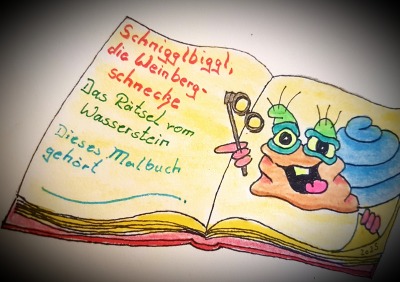 Schnigglbiggl,
die Weinberg-
schnecke
Das Rätsel vom
Wasserstein
Dieses Malbuch
gehört